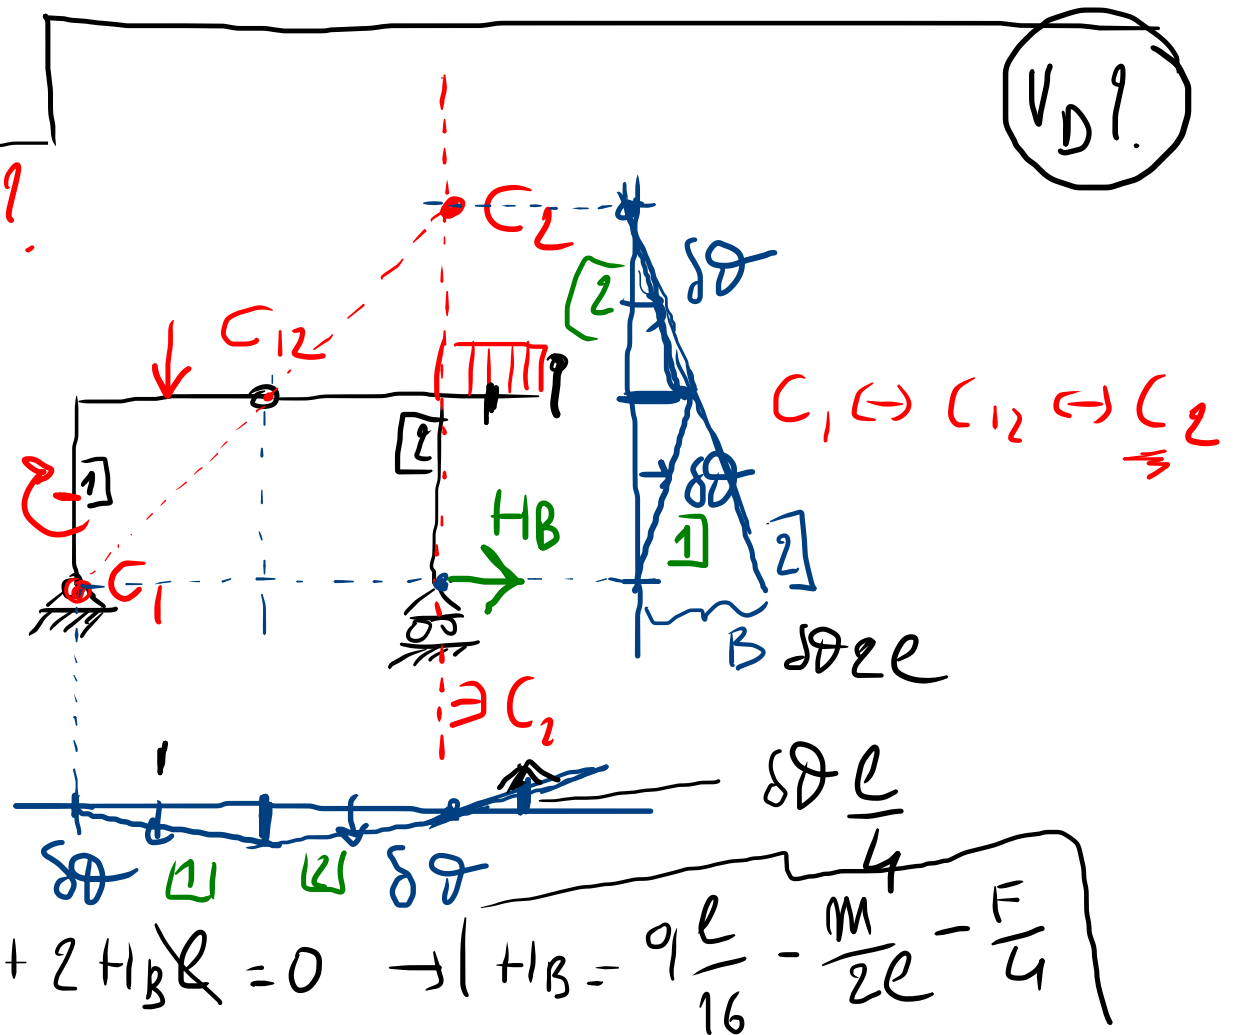 V_D ?
?
C_2
δϑ
[2
C_12
C_1 ↔ C_12 ↔ C_2
[2
1]
H_B
δϑ
1]
2]
C_1
B δϑ2l
∋ C_2
δϑ l/4
δϑ [1] [2] δϑ
+ 2 H_B l = 0 → H_B = q l/16 - m/2l - F/4